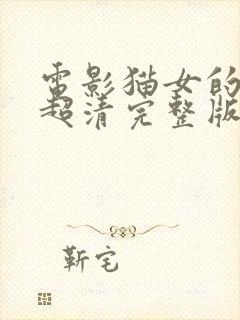 电影猫女的
超清完整版
靳宅